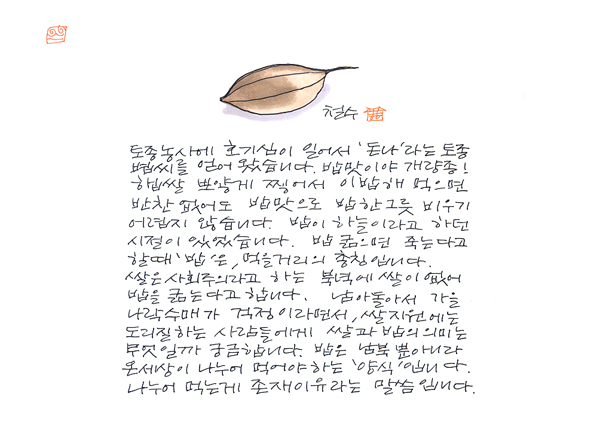 철수
토종농사에 호기심이 일어서 '돈나'라는 토종
볍씨를 얻어 왔습니다. 밥맛이야 개량종!
햅쌀 뽀얗게 찧어서 이밥해 먹으면
반찬 없어도 밥맛으로 밥 한그릇 비우기
어렵지 않습니다. 밥이 하늘이라고 하던
시절이 있었습니다. 밥 굶으면 죽는다고
할때 '밥'은, 먹을거리의 총칭입니다.
쌀은 사회주의라고 하는 북녘에 쌀이 없어
밥을 굶는다고 합니다. 남아돌아서 가을
나락수매가 걱정이라면서, 쌀지원에는
도리질하는 사람들에게 쌀과 밥의 의미는
무엇일까 궁금합니다. 밥은 남북 뿐아니라
온세상이 나누어 먹어야 하는 '양식'입니다.
나누어 먹는게 존재이유라는 말씀입니다.